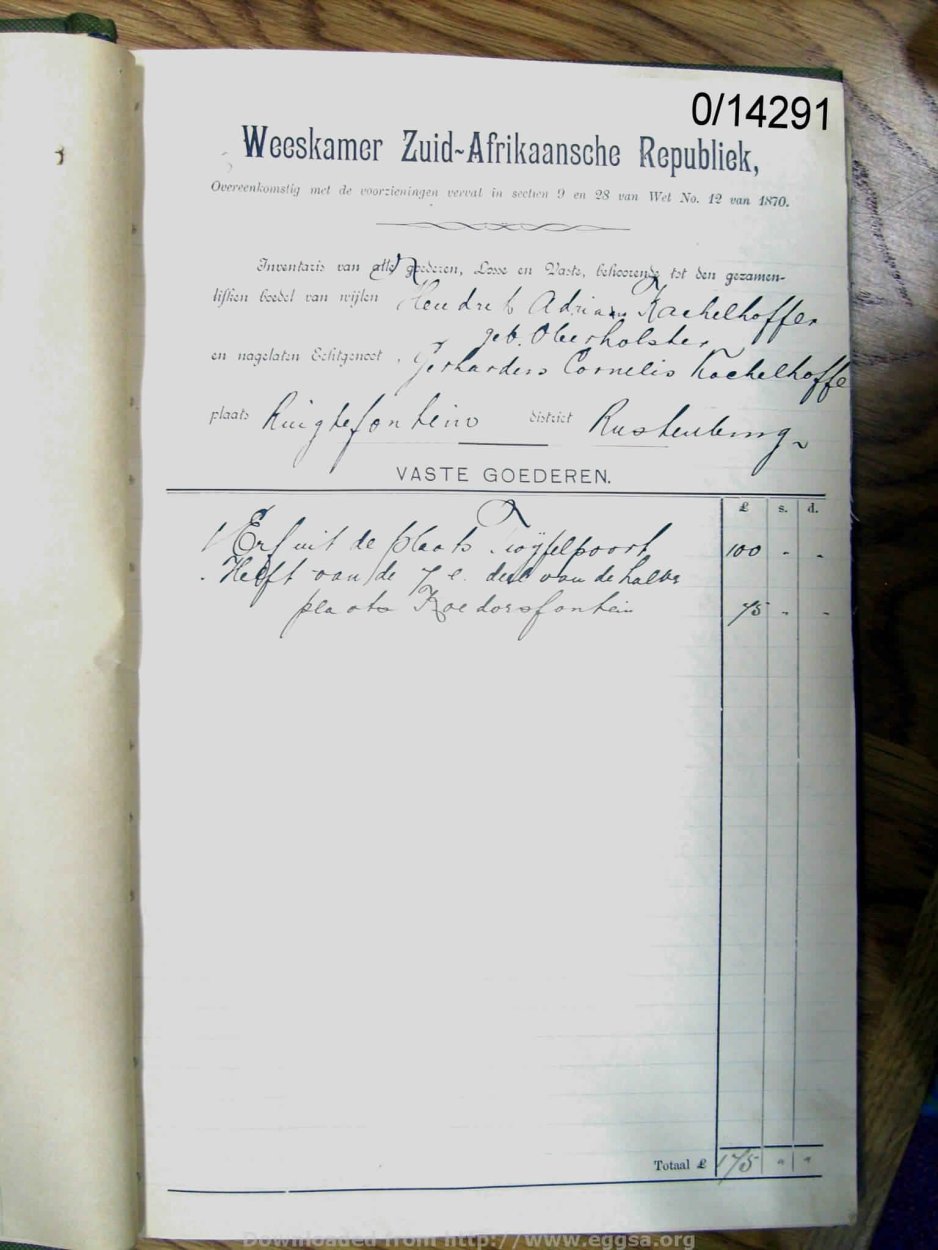 0/14291
Weeskamer Zuid-Afrikaansche Republiek,
Overeenkomstig met de voorzieningen vervat in sectien 9 en 28 van Wet No. 12 van 1870.
Inventaris van alle goederen, Losse en Vaste, behoorende tot den gezamen-
lijken boedel van wijlen Hendrik Adriana Kachelhoffer
geb. Oberholster
en nagelaten Echtgenoot Gerhardus Cornelis Kachelhoffe
plaats fontein district Rustenburg
VASTE GOEDEREN.
£ s. d.
1 Erf uit de plaats Twyfelpoort 100 - -
Helft van de deel van de halve
plaats Koedoesfontein 75 - -
Totaal £ 175 " "
Downloaded from http://www.eggsa.org